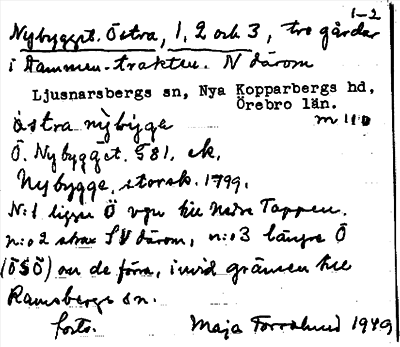 1-2
Nybygget, Östra, 1, 2 och 3, tre gårdar
i Dammen-trakten. N därom
Ljusnarsbergs sn, Nya Kopparbergs hd,
Örebro län.
östra nybygge
Ö. Nybygget. G 81. ek.
Nybygge, storsk. 1799.
N:1 ligger Ö vgn till Nedre Tappen.
n:o 2 strax SV därom, n:o 3 längre Ö
(ÖSÖ) om de förra, invid gränsen till
Ramsbergs sn.
forts. Maja Torrlund 1949